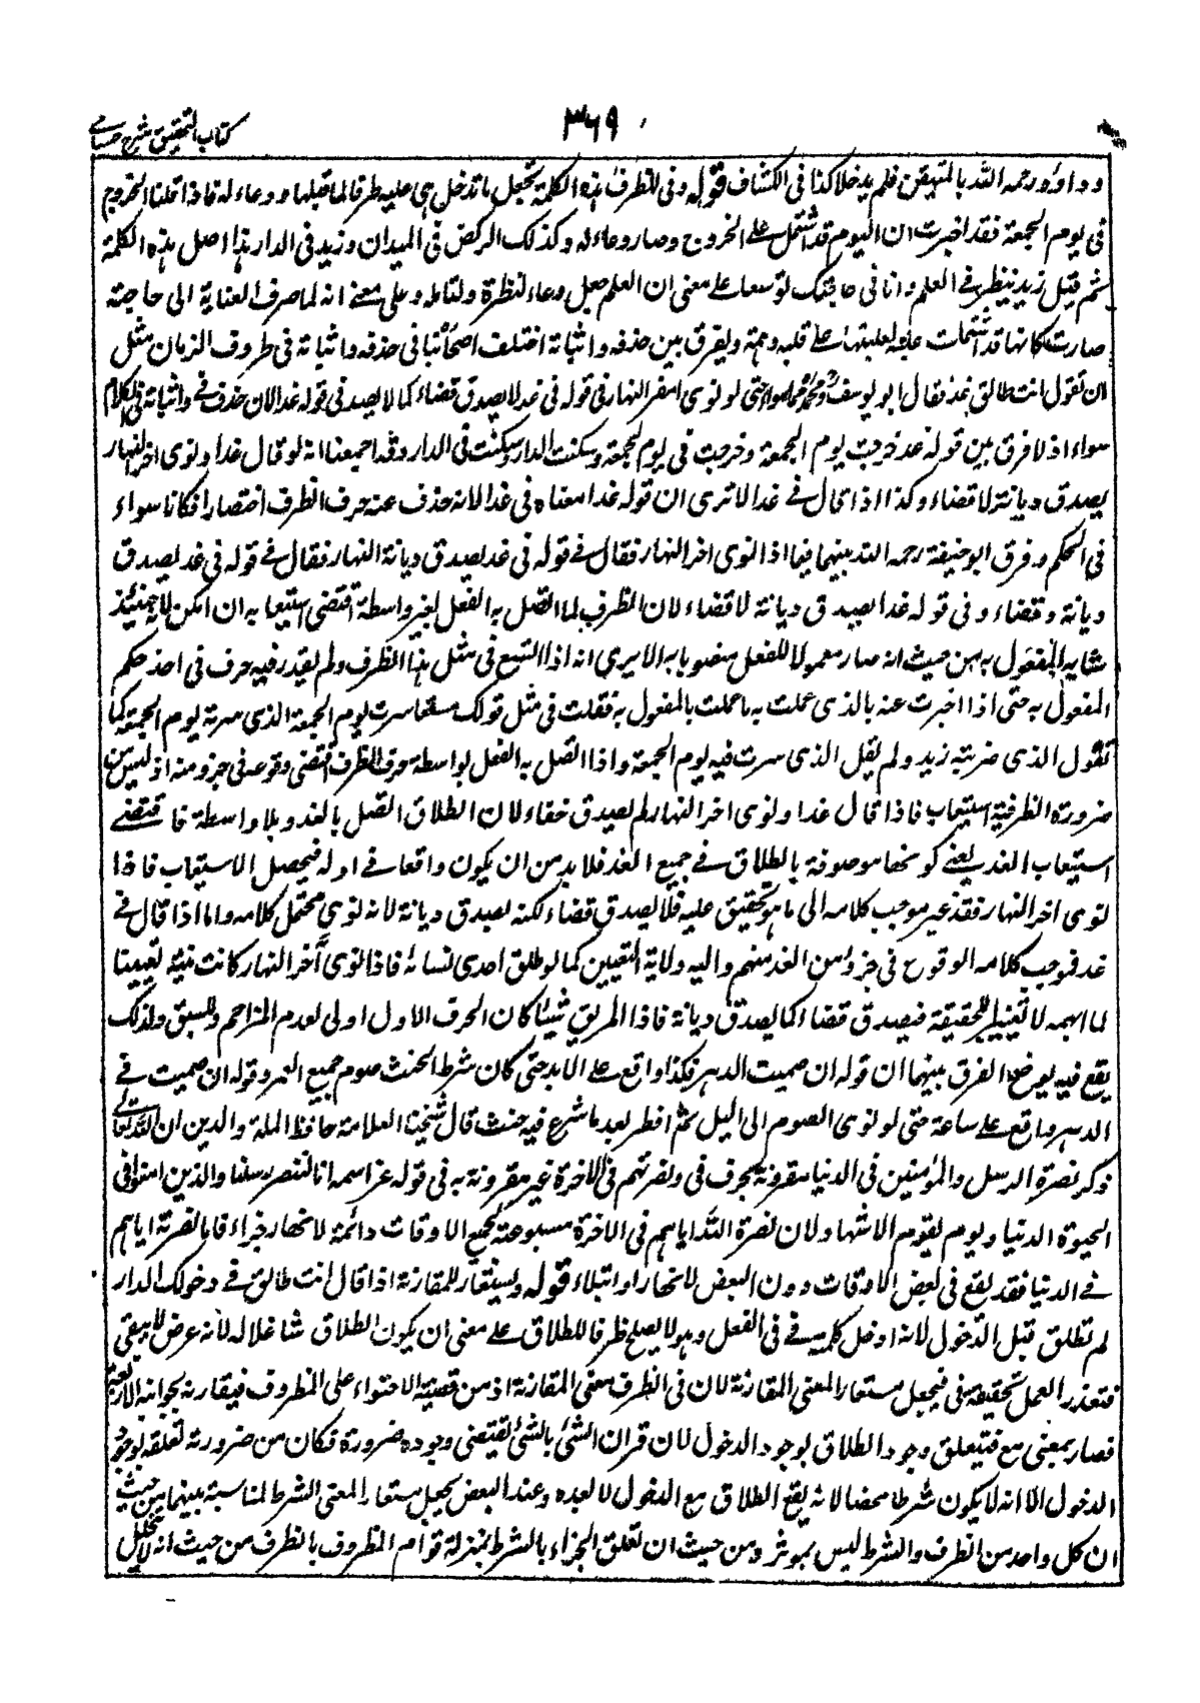 كتاب التحقيق شرح حسامى
٣٦٩
وداؤد رحمه الله بالمتيقن فلم يدخلا كذا فى الكشاف قوله وفى للظرف هذه الكلمة تجعل ما تدخل هى عليه ظرفا لما قبلها ووعاء له فاذا قلنا الخروج
فى يوم الجمعة فقد اخبرت ان اليوم قد اشتمل على الخروج وصار وعاء له وكذلك الركض فى الميدان وزيد فى الدار هذا اصل هذه الكلمة
ثم قيل زيد ينظر فى العلم وانا فى حاجتك توسعا على معنى ان العلم جعل وعاء لنظره وتامله وعلى معنى انه لما صرف العناية الى حاجته
صارت كانها قد اشتملت عليه لغلبتها على قلبه وهمه ويفرق بين حذفه واثباته اختلف اصحابنا فى حذفه واثباته فى ظروف الزمان مثل
ان تقول انت طالق غدا فقال ابو يوسف ومحمد هما سواء حتى لو نوى اخر النهار فى قوله فى غد لا يصدق قضاء كما لا يصدق فى قوله غدا لان حذف فى واثباته فى الكلام
سواء اذ لا فرق بين قوله خرجت يوم الجمعة وخرجت فى يوم الجمعة وسكنت الدار وسكنت فى الدار وقد اجمعنا انه لو قال غدا ونوى اخر النهار
يصدق ديانة لا قضاء وكذا اذا قال فى غد الا ترى ان قوله غدا معناه فى غد الا انه حذف عنه حرف الظرف اختصارا فكانا سواء
فى الحكم وفرق ابو حنيفة رحمه الله بينهما فيما اذا نوى اخر النهار فقال فى قوله فى غد يصدق ديانة النهار فقال فى قوله فى غد يصدق
ديانة وقضاء وفى قوله غدا يصدق ديانة لا قضاء لان الظرف لما اتصل به الفعل بغير واسطة اقتضى استيعابه ان امكن لانه حينئذ
شابه المفعول به من حيث انه صار معمولا للفعل منصوبا به الا يرى انه اذا اتسع فى مثل هذا الظرف ولم يقدر فيه حرف فى اخذ حكم
المفعول به حتى اذا اخبرت عنه بالذى عملت به ما عملت بالمفعول به فقلت فى مثل قولك سرت يوم الجمعة الذى سرته يوم الجمعة كما
تقول الذى ضربته زيد ولم يقل الذى سرت فيه يوم الجمعة واذا اتصل به الفعل بواسطة حرف الظرف اقتضى وقوعه فى جزو منه اذ ليس من
ضرورة الظرفية استيعاب فاذا قال غدا ونوى اخر النهار لم يصدق قضاء لان الطلاق اتصل بالغد بلا واسطة فاقتضى
استيعاب الغد يعنى كونها موصوفة بالطلاق فى جميع الغد فلا بد من ان يكون واقعا فى اوله فيحصل الاستيعاب فاذا
نوى اخر النهار فقد غير موجب كلامه الى ما هو تحقيق عليه فلا يصدق قضاء لكنه يصدق ديانة لانه نوى محتمل كلامه واما اذا قال فى
غد فموجب كلامه الوقوع فى جزو من الغد مبهم واليه ولاية التعيين كما لو طلق احدى نسائه فاذا نوى آخر النهار كانت نيته تعيينا
لما ابهمه لا تغييرا للحقيقة فيصدق قضاء كما يصدق ديانة فاذا لم ينو شيئا كان الجزء الاول اولى لعدم المزاحم والسبق ولذلك
يقع فيه يوضح الفرق بينهما ان قوله ان صمت الدهر فكذا واقع على الابد حتى كان شرط الحنث صوم جميع العمر وقوله ان صمت فى
الدهر واقع على ساعة حتى لو نوى الصوم الى الليل ثم افطر بعد ما شرع فيه حنث قال شيخنا العلامة حافظ الملة والدين ان الله تعالى
ذكر نصرة الرسل والمؤمنين فى الدنيا مقرونة بحرف فى ونصرتهم فى الاخرة غير مقرونة به فى قوله عز اسمه انا لننصر رسلنا والذين امنوا فى
الحيوة الدنيا ويوم يقوم الاشهاد لان نصرة الله اياهم فى الاخرة مستوعبة لجميع الاوقات دائمة لانها دار جزاء فاما نصرته اياهم
فى الدنيا فقد يقع فى بعض الاوقات دون البعض لانها دار ابتلاء قوله ويستعار للمقارنة اذا قال انت طالق فى دخولك الدار
لم تطلق قبل الدخول لانه ادخل كلمة فى فى الفعل وهو لا يصلح ظرفا للطلاق على معنى ان يكون الطلاق شاغلا له لانه عرض لا يبقى
فتعذر العمل بحقيقة فى فيجعل مستعارا لمعنى المقارنة لان فى الظرف معنى المقارنة اذ من قضية الاحتواء على المظروف فيقارنه بجوانبه الاربعة
فصار بمعنى مع فيتعلق وجود الطلاق بوجود الدخول لان قران الشئ بالشئ يقتضى وجوده ضرورة فكان من ضرورته تعلقه بوجود
الدخول الا انه لا يكون شرطا محضا لانه يقع الطلاق مع الدخول لا بعده وعند البعض يجعل مستعارا لمعنى الشرط لمناسبة بينهما من حيث
ان كل واحد من الظرف والشرط ليس بموثر ومن حيث ان تعلق الجزاء بالشرط بمنزلة قوام المظروف بالظرف من حيث انه لا يتخلل